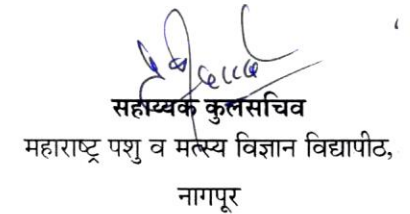 सहाय्यक कुलसचिव
महाराष्ट्र पशु व मत्स्य विज्ञान विद्यापीठ,
नागपूर